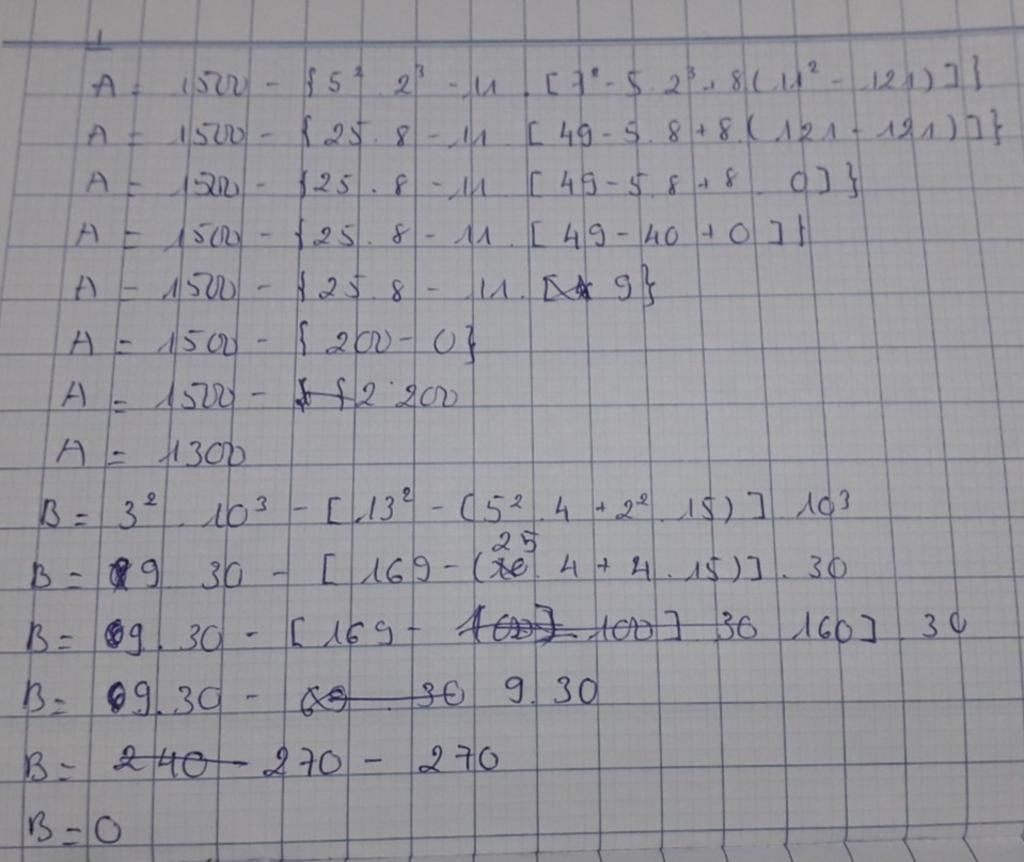 A = 1500 - {5² . 2³ - 11 . [7² - 5 . 2³ + 8 (11² - 121)]}
A = 1500 - {25 . 8 - 11 [49 - 5 . 8 + 8 . (121 - 121)]}
A = 1500 - {25 . 8 - 11 [49 - 5 . 8 + 8 . 0]}
A = 1500 - {25 . 8 - 11 . [49 - 40 + 0]}
A = 1500 - {25 . 8 - 11 . 9}
A = 1500 - {200 - 0}
A = 1500 - 200
A = 1300
B = 3² . 10³ - [13² - (5² . 4 + 2² . 15)] 10³
B = 9 30 - [169 - (25 . 4 + 4 . 15)] . 30
B = 9 . 30 - [169 - 160] 30
B = 9 . 30 - 9 . 30
B = 270 - 270
B = 0